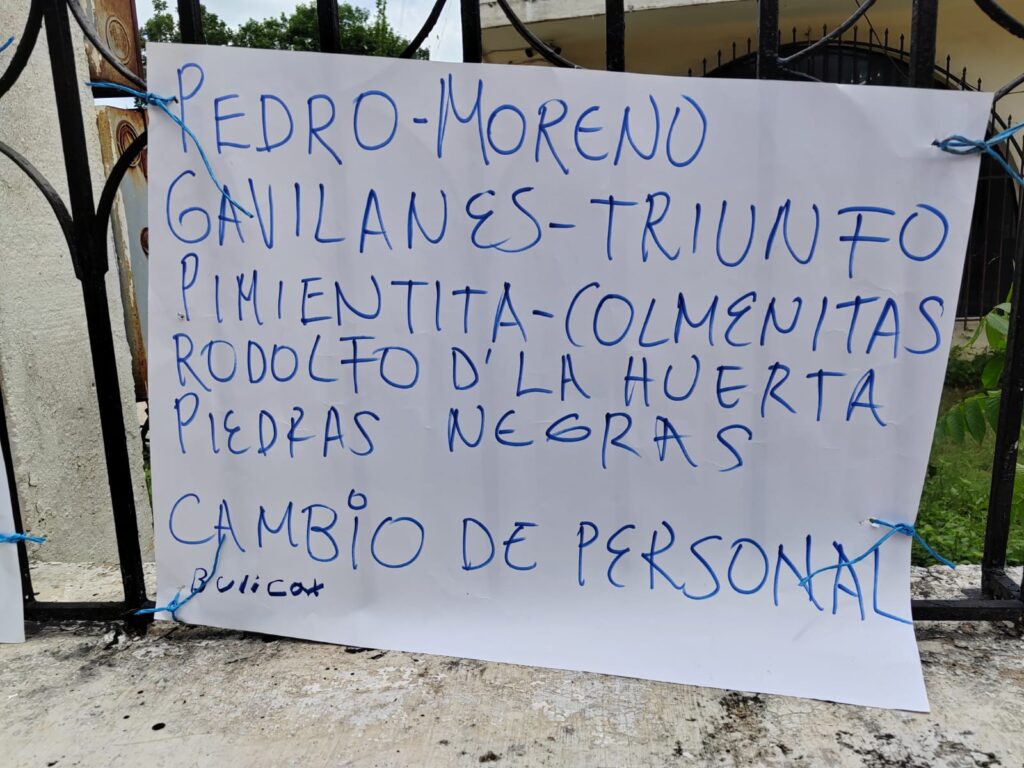 PEDRO-MORENO
GAVILANES-TRIUNFO
PIMIENTITA-COLMENITAS
RODOLFO D'LA HUERTA
PIEDRAS NEGRAS
CAMBIO DE PERSONAL